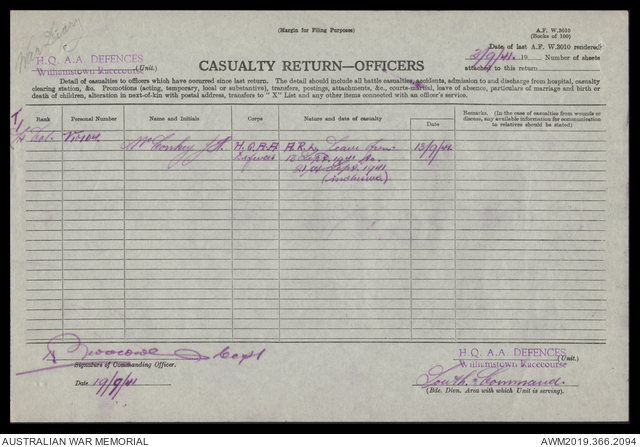 War Diary
(Margin for Filing Purposes)
A.F. W.3010
(Books of 100)
H.Q. A.A. DEFENCES
Williamstown Racecourse
(Unit.)
Date of last A.F. W.3010 rendered
3/9/41. 19
Number of sheets
attached to this return
CASUALTY RETURN—OFFICERS
Detail of casualties to officers which have occurred since last return. The detail should include all battle casualties, accidents, admission to and discharge from hospital, casualty
clearing station, &c. Promotions (acting, temporary, local or substantive), transfers, postings, attachments, &c., courts-martial, leave of absence, particulars of marriage and birth or
death of children, alteration in next-of-kin with postal address, transfers to "X" List and any other items connected with an officer's service.
Rank
Personal Number
Name and Initials
Corps
Nature and date of casualty
Date
Remarks. (In the case of casualties from wounds or
disease, any available information for communication
to relatives should be stated)
T/
Lt Col.
H.Q.A.A.
Defences
A.R.L. Leave from
13 Sept. 1941 to
Sept. 1941
(inclusive)
13/9/41.
Capt
Signature of Commanding Officer.
Date 19/9/41
H.Q. A.A. DEFENCES
Williamstown Racecourse
(Unit.)
South. Command.
(Bde. Divn. Area with which Unit is serving).
AUSTRALIAN WAR MEMORIAL
AWM2019.366.2094